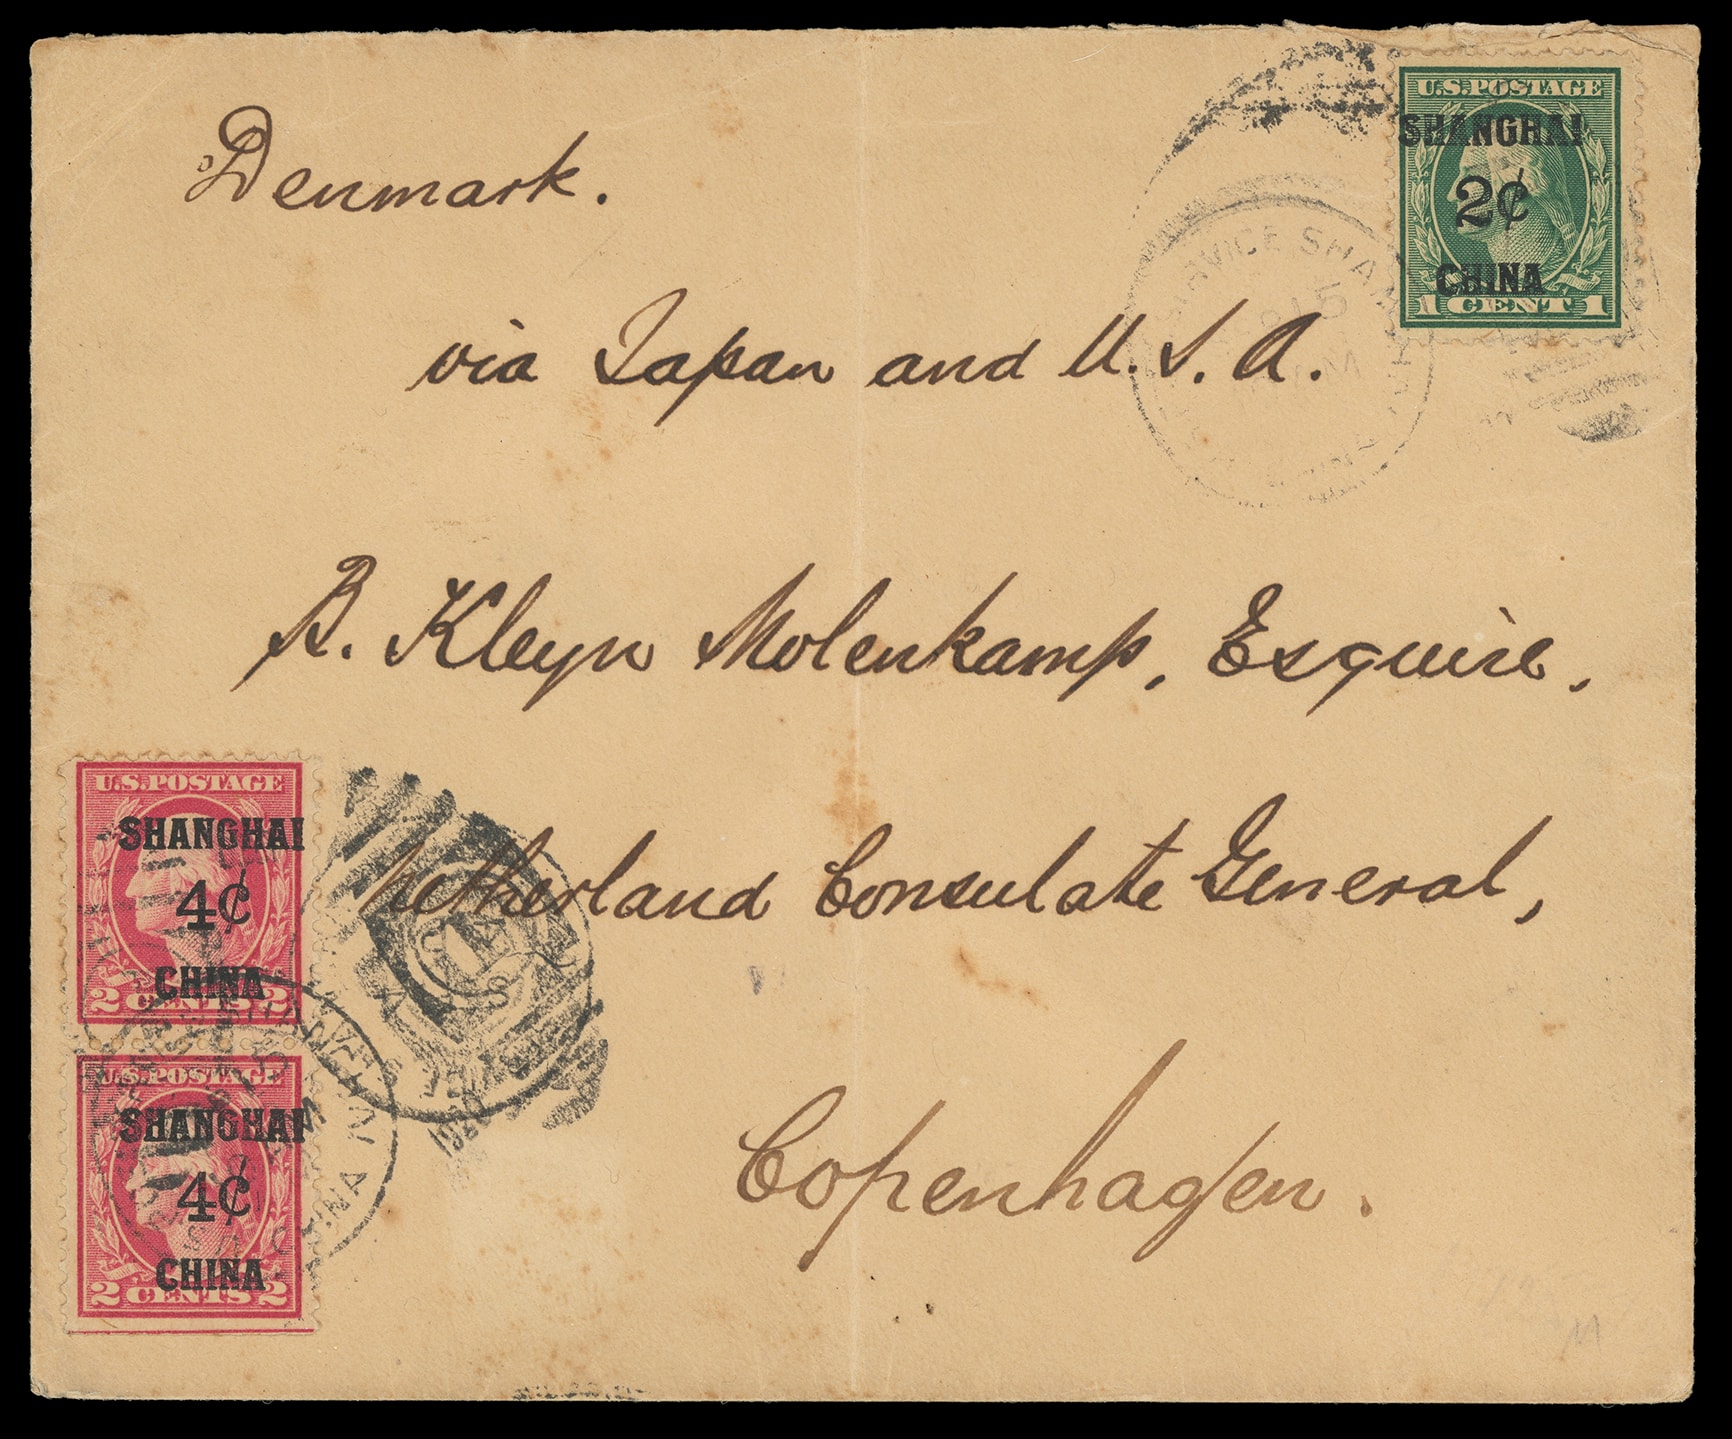 U.S. POSTAGE
SHANGHAI
2¢
CHINA
1 CENT 1
Denmark.
SERVICE SHANGHAI
15
via Japan and U.S.A.
B. Kleyn Molenkamp, Esquire,
Netherland Consulate General,
Copenhagen.
U.S. POSTAGE
SHANGHAI
4¢
CHINA
2 CENTS 2
U.S. POSTAGE
SHANGHAI
4¢
CHINA
2 CENTS 2
CHINA